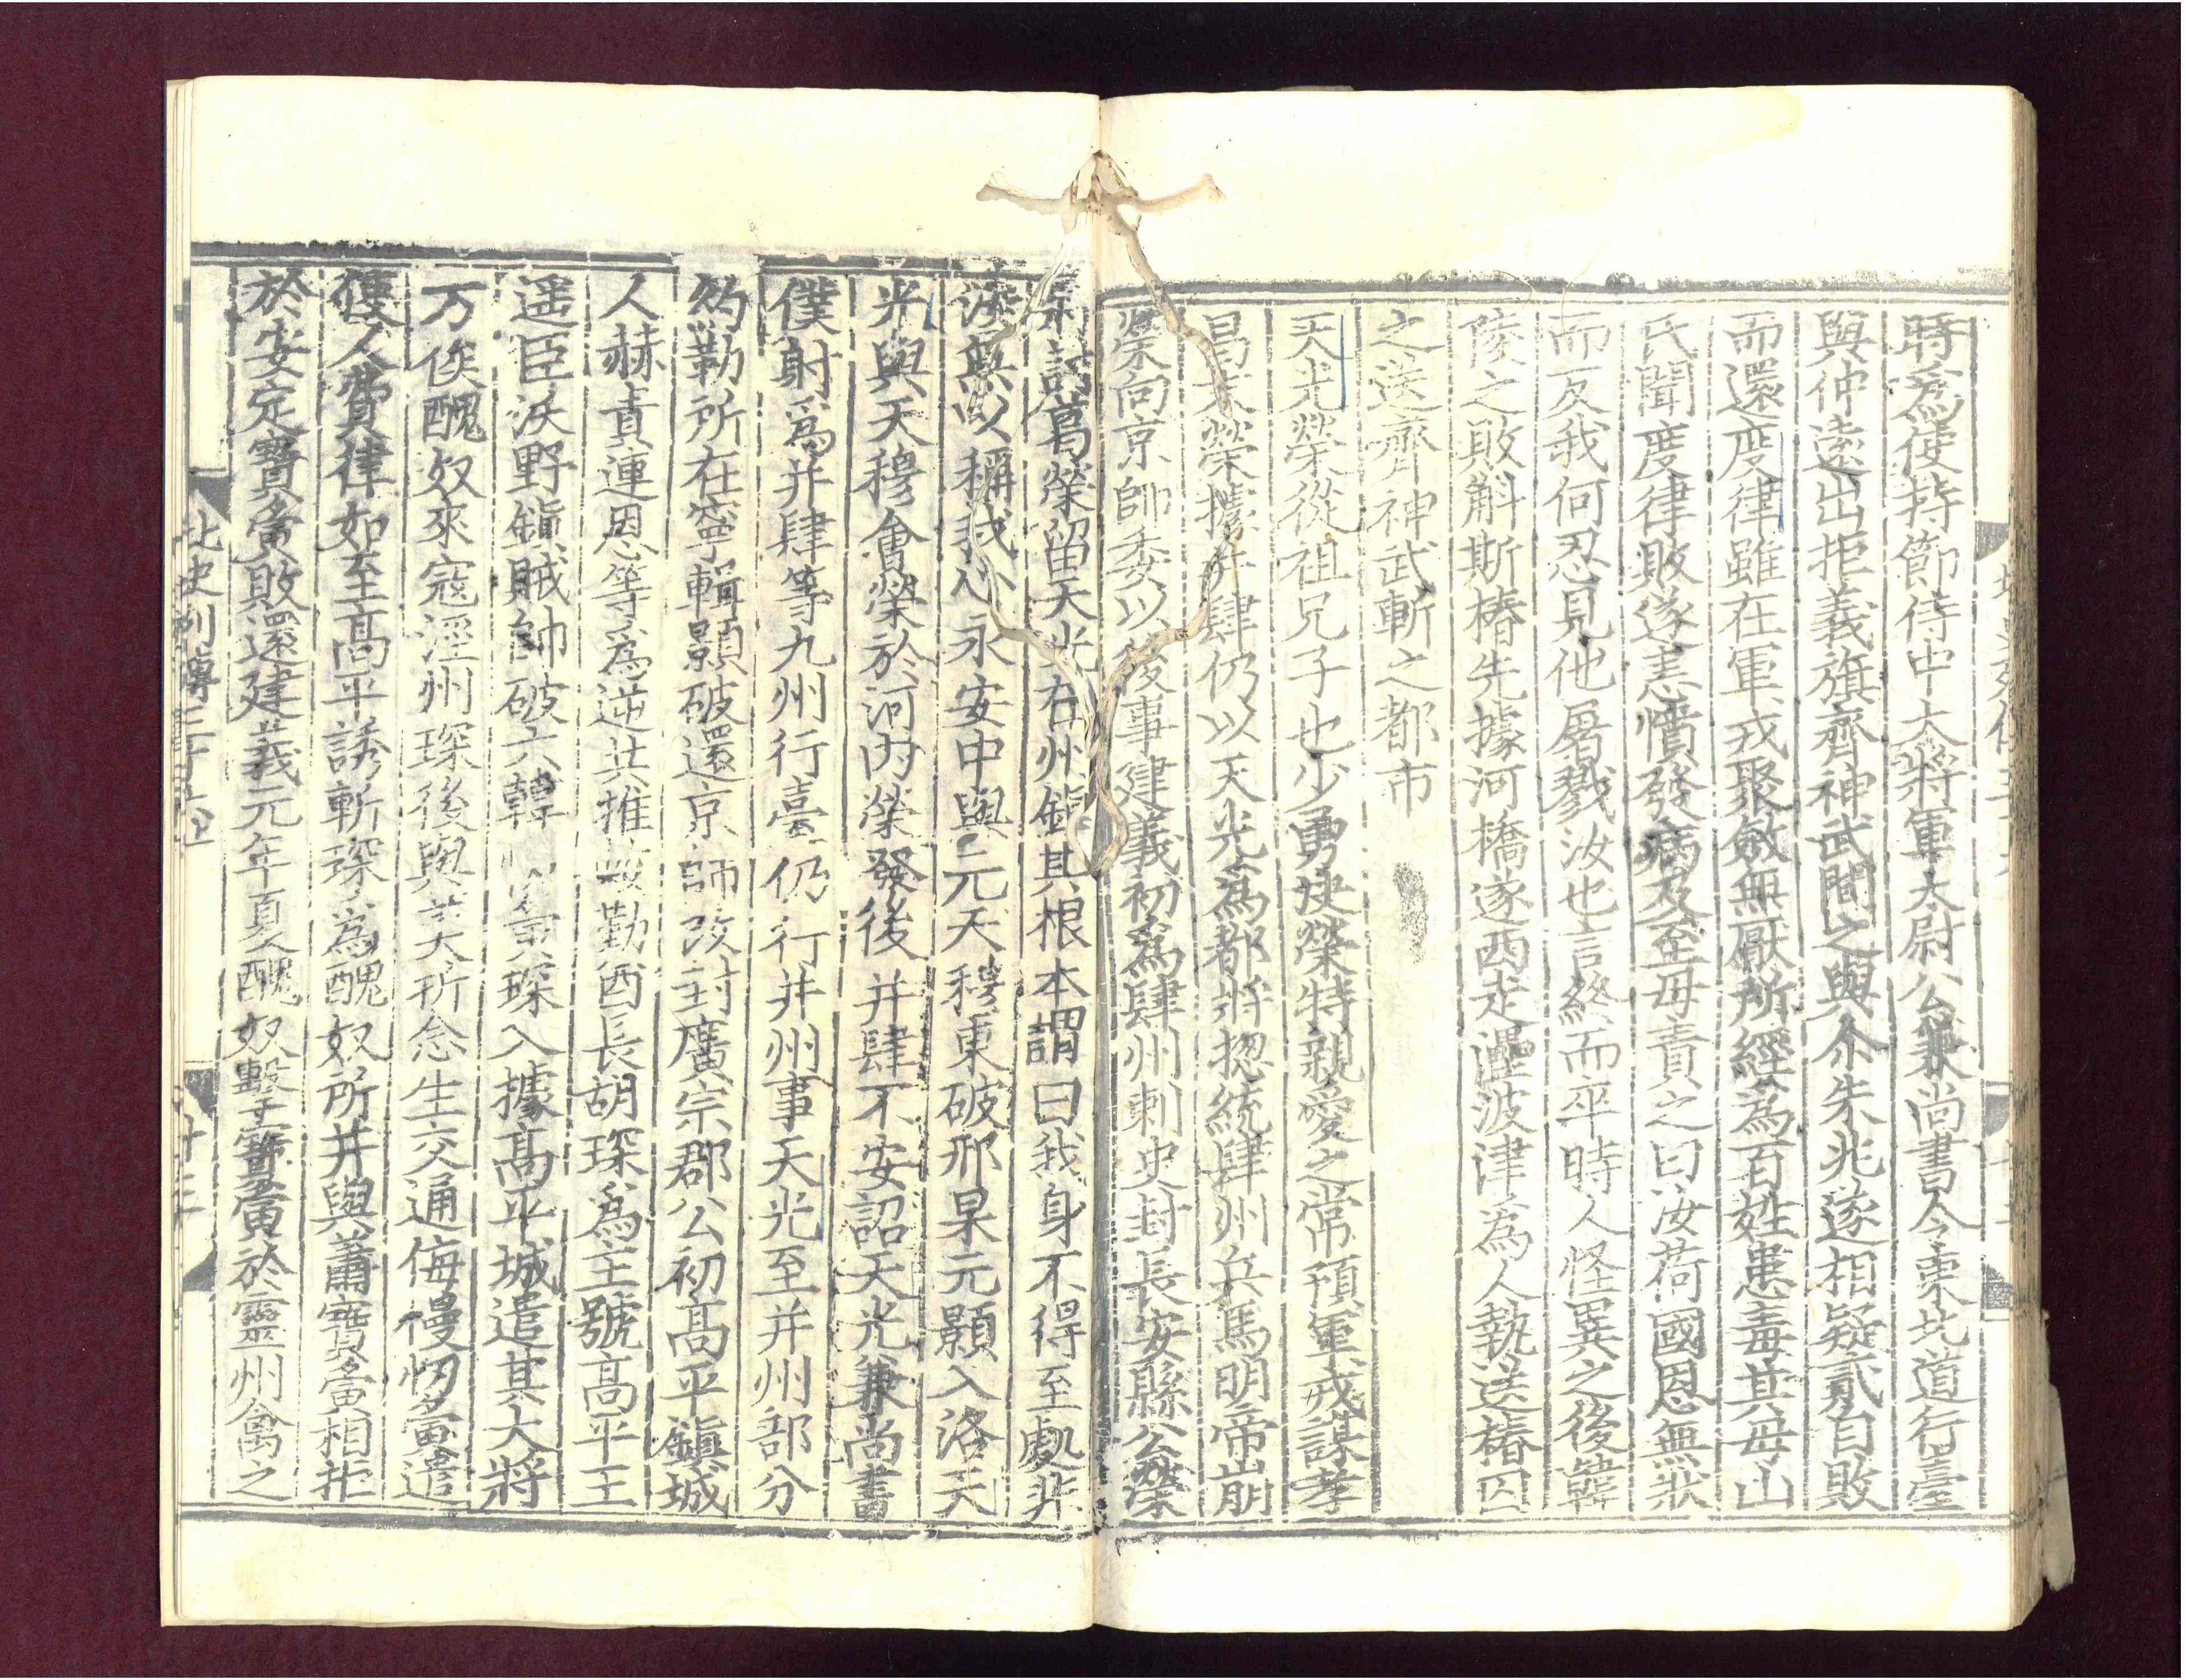 時爲使持節侍中大將軍太尉公兼尚書令東北道行臺
與仲遠出拒義旗齊神武間之與尒朱兆遂相疑貳自敗
而還度律雖在軍戎聚斂無厭所經爲百姓患毒其母山
氏聞度律敗遂恚憤發病及至母責之曰汝荷國恩無狀
而反我何忍見他屠戮汝也言終而卒時人怪異之後韓
陵之敗斛斯椿先據河橋遂西走灅波津爲人執送椿囚
之送齊神武斬之都市
天光榮從祖兄子也少勇決榮特親愛之常預軍戎謀孝
昌末榮據并肆仍以天光爲都將揔統肆州兵馬明帝崩
榮向京師委以後事建義初爲肆州刺史封長安縣公榮
將討葛榮留天光在州鎮其根本謂曰我身不得至處非
汝無以稱我心永安中與元天穆東破邢杲元顥入洛天
光與天穆會榮於河内榮發後并肆不安詔天光兼尚書
僕射爲并肆等九州行臺仍行并州事天光至并州部分
約勒所在寧輯顥破還京師改封廣宗郡公初高平鎮城
人赫責連恩等爲逆共推敕勤酋長胡琛爲主號高平王
遥臣沃野鎮賊帥破六韓 琛入據高平城遣其大將
万俟醜奴來寇涇州琛後與莫折念生交通侮慢 遣
使人費律如至高平誘斬琛爲醜奴所并與蕭寶夤相拒
於安定寶夤敗還建義元年夏醜奴擊寶夤於靈州禽之
北史列傳三十六